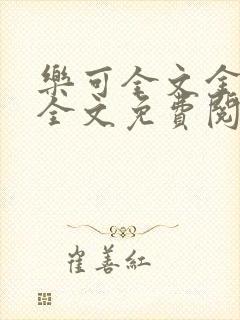 樂可全文全
全文免費閱
崔善紅